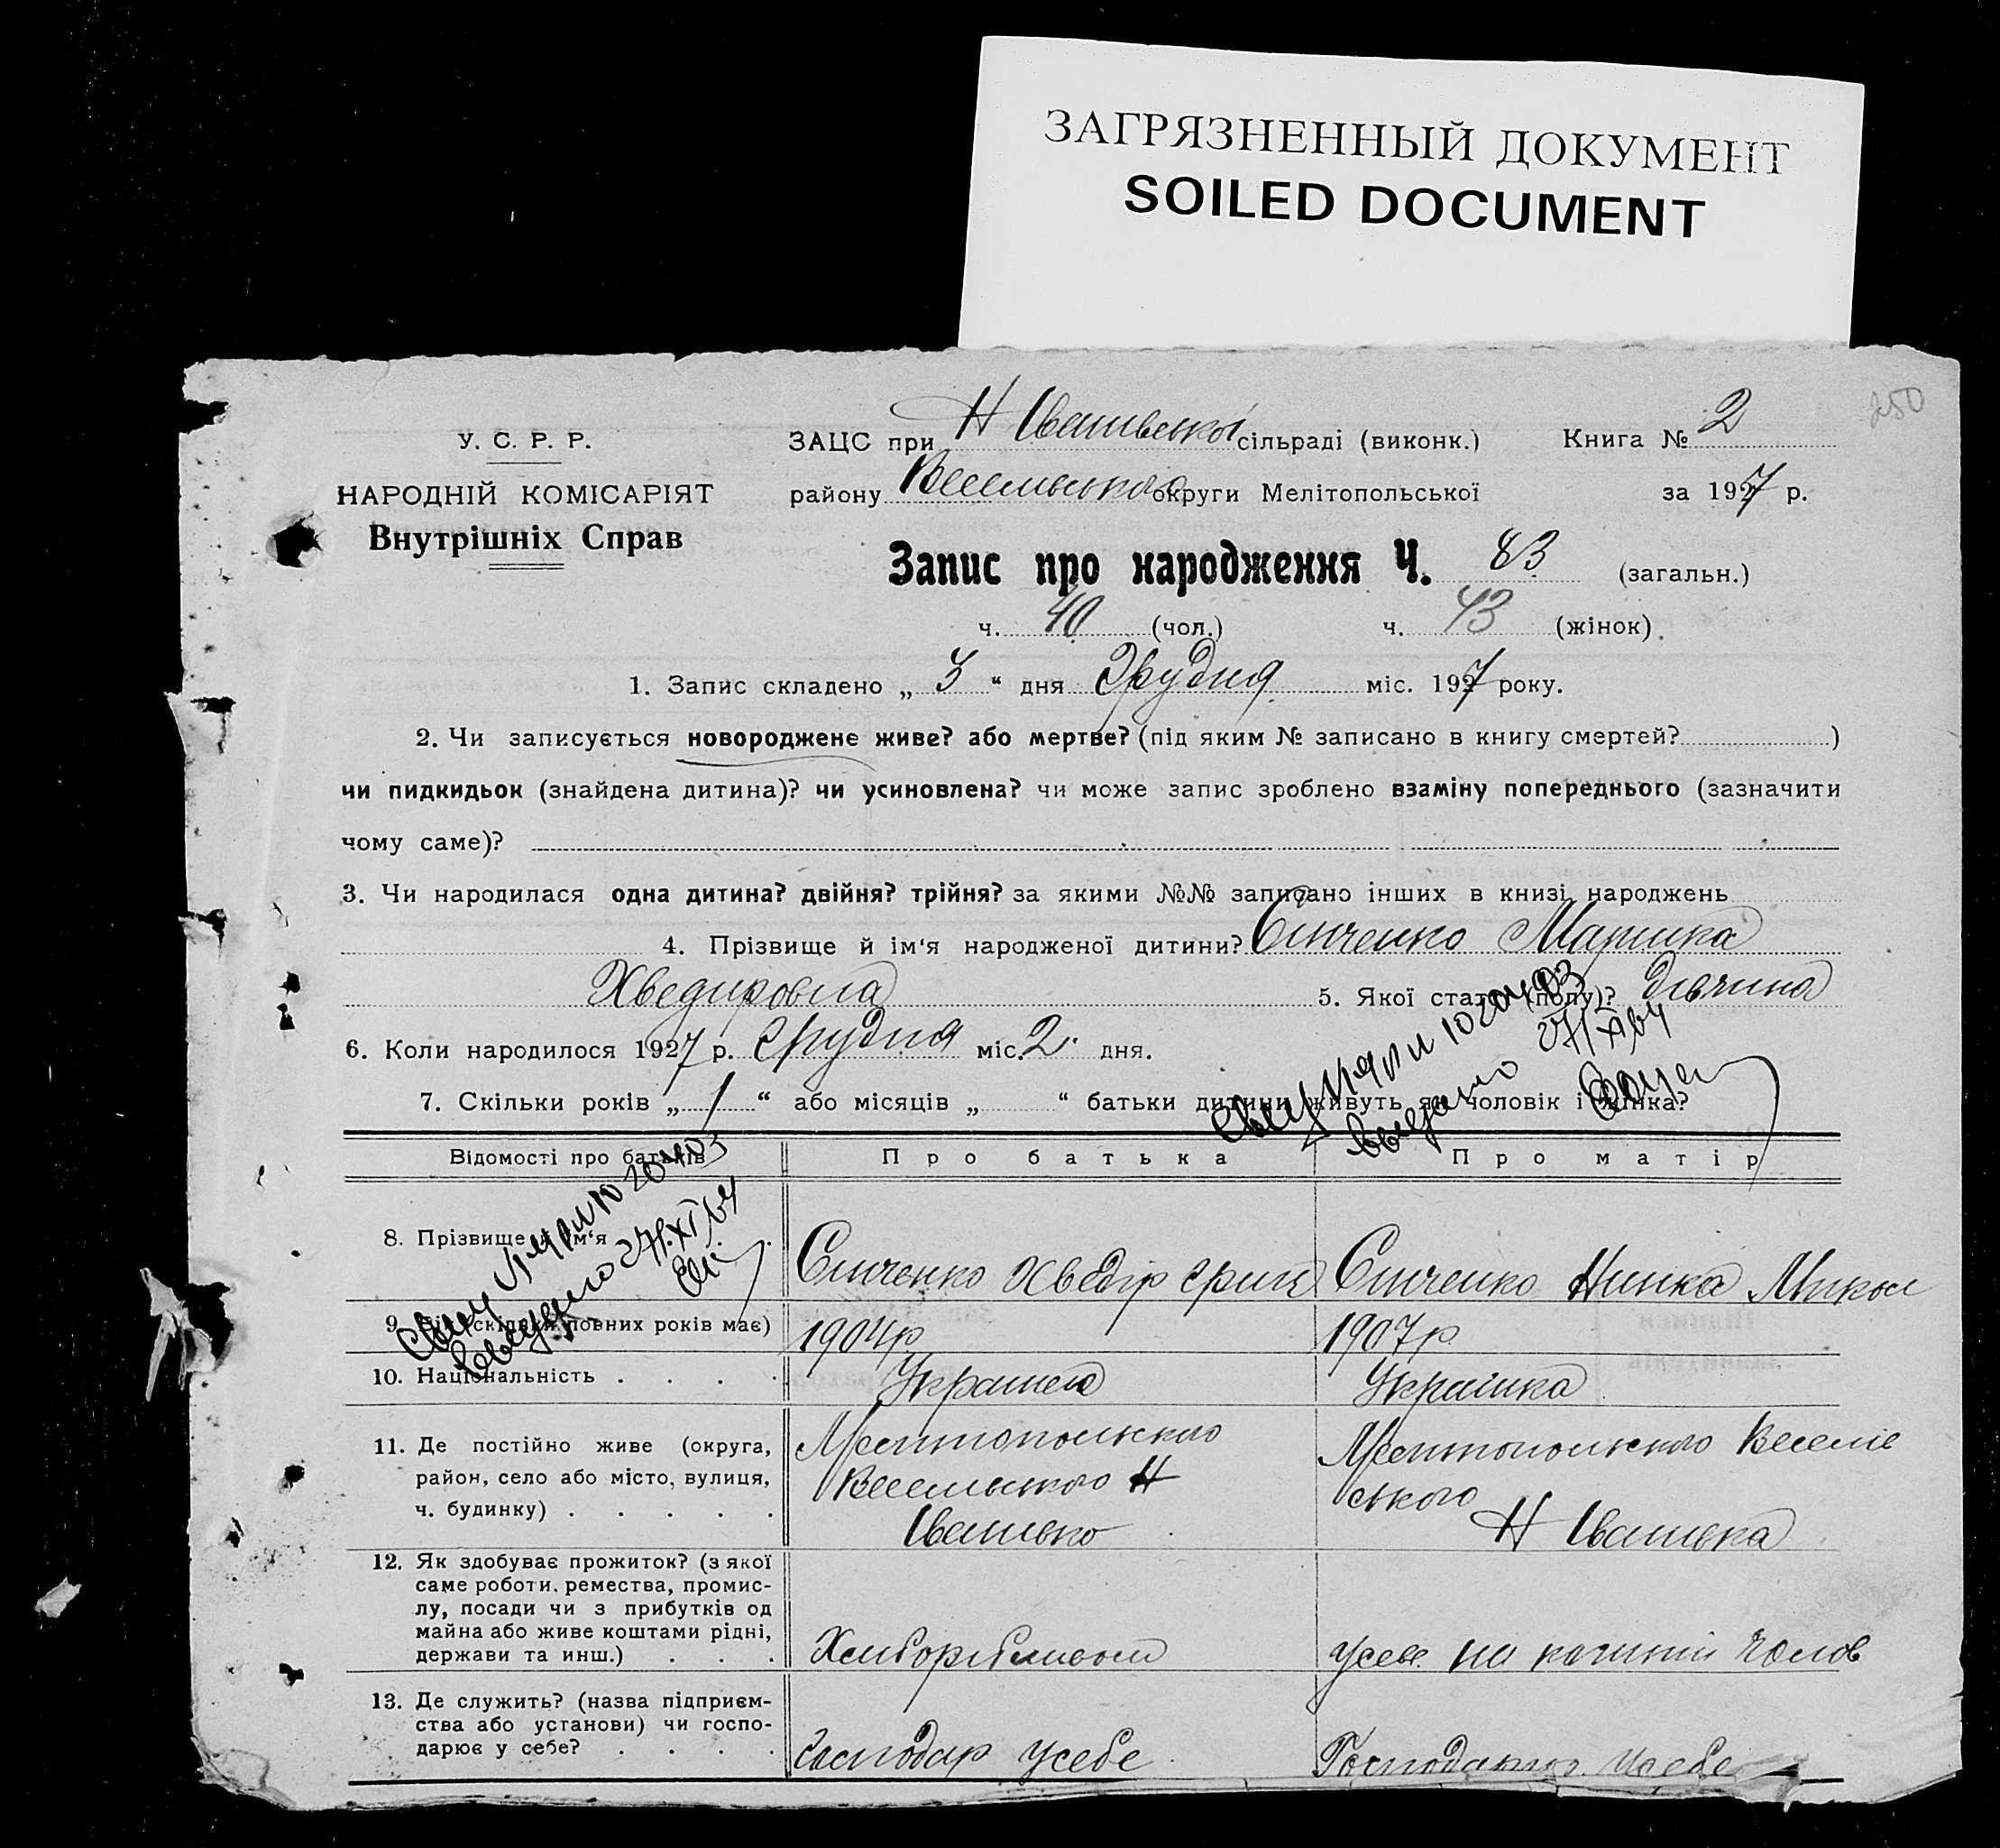 ЗАГРЯЗНЕННЫЙ ДОКУМЕНТ
SOILED DOCUMENT
250
У. С. Р. Р.
НАРОДНІЙ КОМІСАРІЯТ
Внутрішніх Справ
ЗАЦС при Н Іванівської сільраді (виконк.) Книга № 2
району Веселівського округи Мелітопольської за 1927 р.
Запис про народження Ч. 83 (загальн.)
ч. 40 (чол.) ч. 43 (жінок)
1. Запис складено „ 3 “ дня Грудня міс. 1927 року.
2. Чи записується новороджене живе? або мертве? (під яким № записано в книгу смертей? )
чи пидкидьок (знайдена дитина)? чи усиновлена? чи може запис зроблено взаміну попереднього (зазначити
чому саме)?
3. Чи народилася одна дитина? двійня? трійня? за якими №№ записано інших в книзі народжень
4. Прізвище й ім‘я народженої дитини? Єниченко Маринка
Хведировна 5. Якої статі (полу)? дівчина
6. Коли народилося 1927 р. Грудня міс. 2 дня.
7. Скільки років „ 1 “ або місяців „ “ батьки дитини живуть як чоловік і жинка?
Відомості про батьків Про батька Про матір
8. Прізвище й ім‘я Хведір Григ Нинка Микол
9. (скільки повних років має) 1904р 1907р
10. Національність Українец Українка
11. Де постійно живе (округа, район, село або місто, вулиця, ч. будинку) Мелітопольського Веселівського Н Іванівка
Мелітопольського Веселівського Н Іванівка
12. Як здобуває прожиток? (з якої
саме роботи, ремества, промис-
лу, посади чи з прибутків од
майна або живе коштами рідні,
держави та инш.) Хліборобством на чолов
13. Де служить? (назва підприєм-
ства або установи) чи госпо-
дарює у себе? Господар у себе у себе